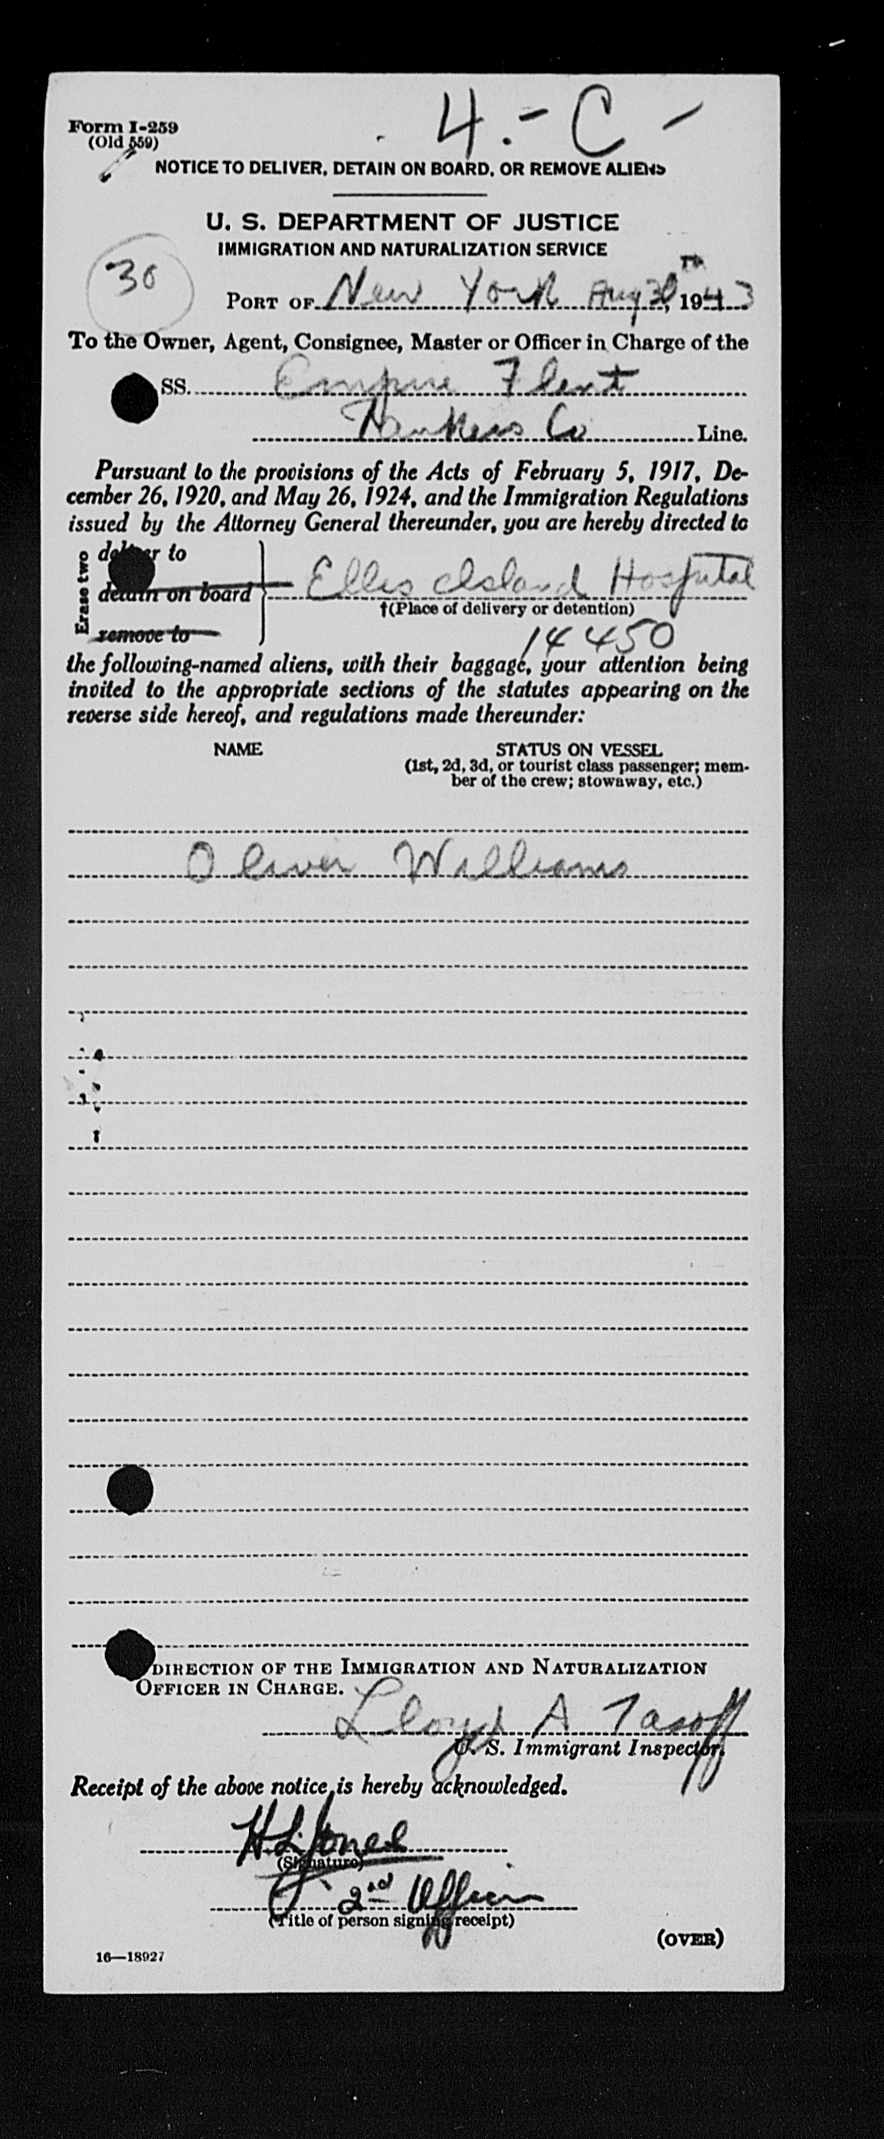 4.-C-
Form I-259
(Old 559)
NOTICE TO DELIVER, DETAIN ON BOARD, OR REMOVE ALIENS
U. S. DEPARTMENT OF JUSTICE
IMMIGRATION AND NATURALIZATION SERVICE
30
PORT OF New York Aug 30th, 1943
To the Owner, Agent, Consignee, Master or Officer in Charge of the
SS. Empire Flint
Tankers Co Line.
Pursuant to the provisions of the Acts of February 5, 1917, De-
cember 26, 1920, and May 26, 1924, and the Immigration Regulations
issued by the Attorney General thereunder, you are hereby directed to
Erase two
deliver to
detain on board Ellis Island Hospital
†(Place of delivery or detention)
remove to
14450
the following-named aliens, with their baggage, your attention being
invited to the appropriate sections of the statutes appearing on the
reverse side hereof, and regulations made thereunder:
NAME STATUS ON VESSEL
(1st, 2d, 3d, or tourist class passenger; mem-
ber of the crew; stowaway, etc.)
Oliver Williams
DIRECTION OF THE IMMIGRATION AND NATURALIZATION
OFFICER IN CHARGE.
Lloyd A Tasoff
U. S. Immigrant Inspector.
Receipt of the above notice is hereby acknowledged.
H L Jones
(Signature)
2nd Officer
(Title of person signing receipt)
(OVER)
16—18927